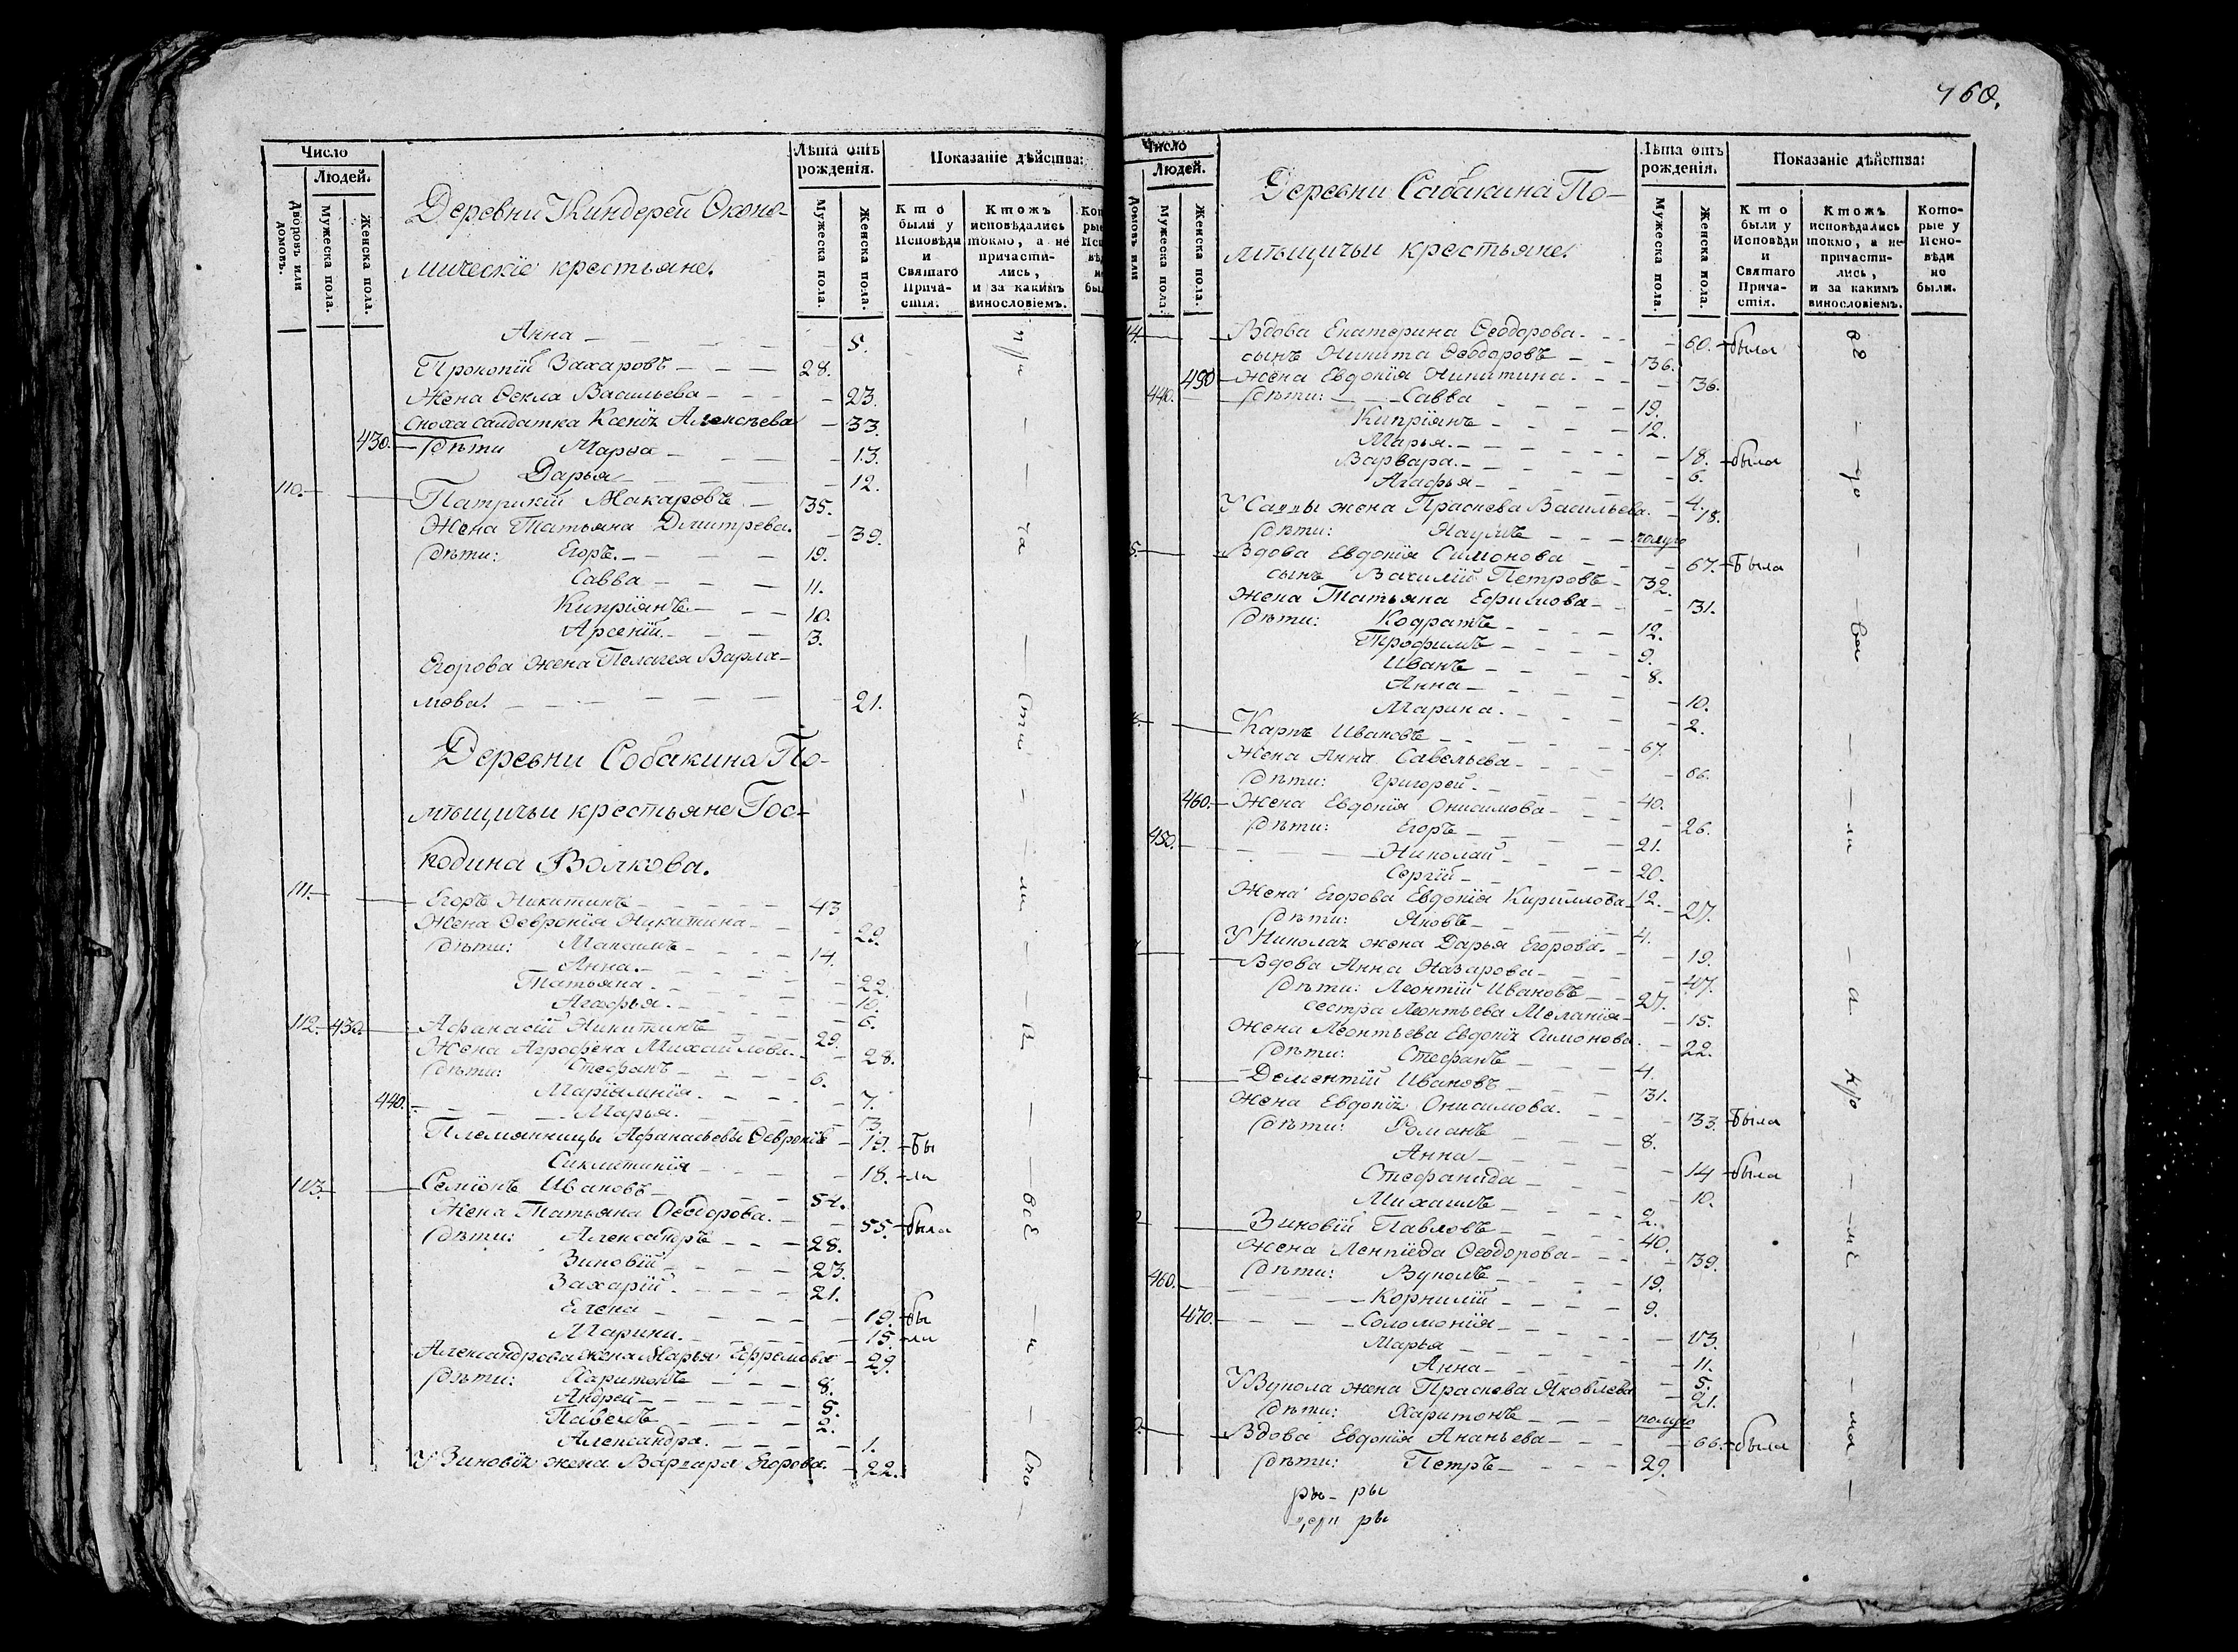 460.
Число
Людей.
Дворовъ или домовъ.
Мужеска пола.
Женска пола.
Деревни Киндерей Эконо-
мическіе крестьяне.
Лѣта отъ рожденія.
Мужеска пола.
Женска пола.
Показаніе дѣйства:
Кто были у Исповѣди и Святаго Прича-стія.
Ктожъ исповѣдались токмо, а не причасти-лись, и за какимъ винословіемъ.
Анна 5.
Прокопій Захаровъ 28.
Жена Ѳекла Васильева 23.
Сноха салдатка Ксенія Алексѣева 33.
430. Дѣти Марья 13.
Дарья 12.
110. Патрикій Макаровъ 35.
Жена Татьяна Дмитрева. 39.
Дѣти: Егоръ. 19.
Савва 11.
Кипріянъ. 10.
Арсеній. 3.
Егорова жена Пелагея Варла-
мова. 21.
Деревни Собакина По-
мѣщичьи крестьяне Гос-
подина Волкова.
111. Егоръ Никитинъ 43
Жена Ѳевронія Никитина 29.
Дѣти: Максимъ 14.
Анна. 22.
Татьяна. 10.
Агафья. 6.
112. 430. Афанасій Никитинъ 29.
Жена Агрофена Михайлова. 28.
Дѣти: Стефанъ 6.
Маріямнія. 7.
440. Марья. 3.
Племянницы Афанасьевы Ѳевронія 19. бы
Синклитикія 18. ли
113. Семіонъ Ивановъ 54.
Жена Татьяна Ѳеодорова. 55. была
Дѣти: Александръ 28.
Зиновій 23.
Захарій. 21.
Елена 19. бы
Марина. 15. ли
Александрова жена Марья Ефремова 29.
Дѣти: Харитонъ 8.
Андрей 5.
Павелъ 2.
Александра. 1.
У Зиновія жена Варвара Егорова. 22.
Число
Людей.
Домовъ или
Мужеска пола.
Женска пола.
Деревни Сабакина По-
мѣщичьи крестьяне.
Лѣта отъ рожденія.
Мужеска пола.
Женска пола.
Показаніе дѣйства:
Кто были у Исповѣди и Святаго Прича-стія.
Ктожъ исповѣдались токмо, а не причасти-лись, и за какимъ винословіемъ.
Кото-рые у Испо-вѣди не были.
14. Вдова Екатерина Ѳеодорова. 60. была
сынъ Никита Ѳеодоровъ 36.
450 Жена Евдокія Никитина. 36.
440. Дѣти: Савва 19.
Кипріянъ 12.
Марья. 18. была
Варвара. 6.
Агафья 4.
У Саввы жена Праскева Васильева. 18.
Дѣти: Наумъ полуго
5. Вдова Евдокія Симонова 67. была
сынъ Василій Петровъ 32.
Жена Татьяна Ефимова 31.
Дѣти: Кодратъ 12.
Трофимъ 9.
Иванъ 8.
Анна 10.
Марина. 2.
Карпъ Ивановъ 67.
Жена Анна Савельева 66.
Дѣти: Григорей. 40.
460. Жена Евдокія Онисимова 26.
Дѣти: Егоръ 21.
450. Николай 20.
Сергій 12.
Жена Егорова Евдокія Кириллова 27.
Дѣти: Яковъ 4.
У Николая жена Дарья Егорова. 19.
Вдова Анна Назарова 47.
Дѣти: Леонтій Ивановъ 27.
сестра Леонтьева Меланія 15.
Жена Леонтьева Евдокія Симонова. 22.
Дѣти: Стефанъ 4.
Дементій Ивановъ 31.
Жена Евдокія Онисимова. 33. была
Дѣти: Романъ 8.
Анна 14 была
Стефанида 10.
Михаилъ 2.
Зиновій Павловъ 40.
Жена Ѳеодорова 39.
Дѣти: Вуколъ 19.
460. Корнилій 9.
470. Соломонія 13.
Марья 11.
Анна 5.
У Вукола жена Праскева Яковлева 21.
Дѣти: Харитонъ полуго
Вдова Евдокія Ананьева 66. была
Дѣти: Петръ 29.